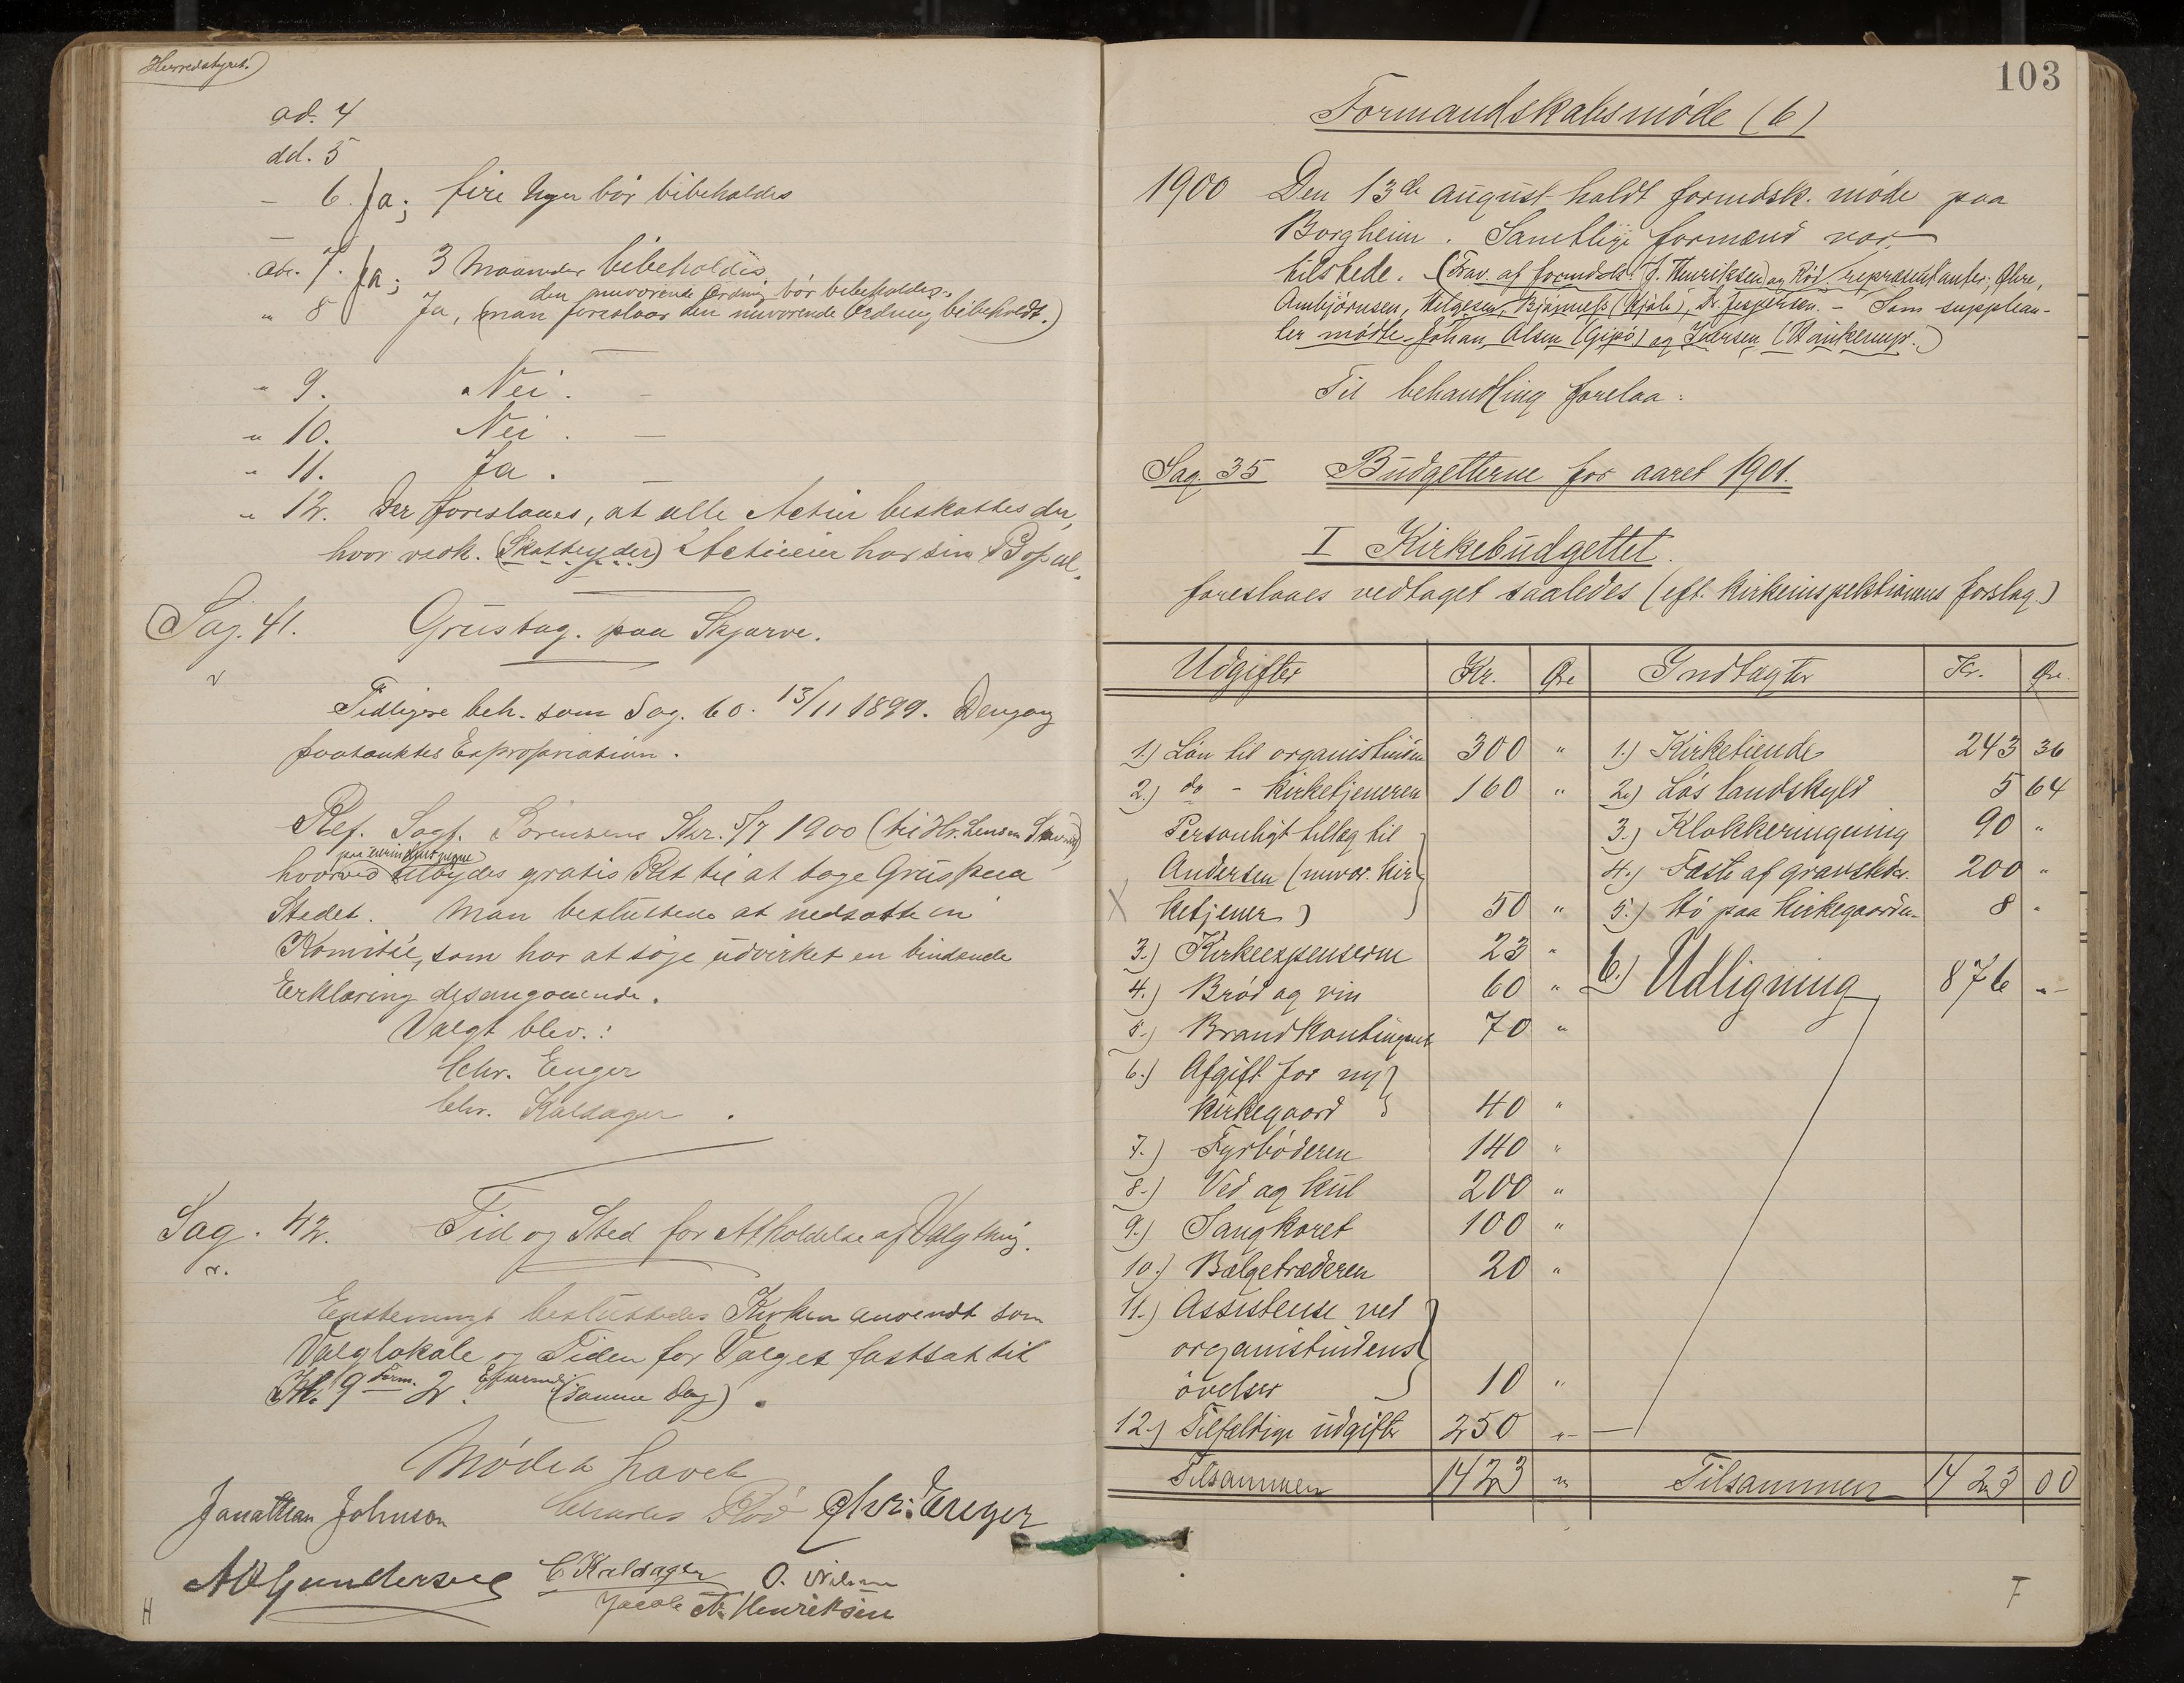 Herredstyret.
ad. 4
ad. 5
– 6. Ja; fire Uger bör bibeholdes
ad. 7. Ja; 3 Maaneder bibeholdes
den nuværende Ordning bör bibeholdes
" 8 Ja, (man foreslaar den nuværende Ordning bibeholdt.)
" 9. Nei. –
" 10. Nei. –
" 11. Ja.
" 12. Der foreslaaes, at alle Actier beskattes der,
hvor vedk. (Skatteyder) Actieeier har sin Bopæl.
Sag. 41. Grustag. paa Skjærve.
v
Tidligere beh. som Sag. 60. 13/11 1899. Dengang
paatænktes Expropriation.
Ref. Sagf. Sörensens Skr. 5/7 1900 (til Hr. Lensm.
hvorved tilbydes gratis Ret til at tage Grus paa
Stedet. Man besluttede at nedsætte en
Komitée, som har at söge udvirket en bindende
Erklæring desangaaende.
Valgt blev.:
Chr. Enger
Chr. Kaldager.
Sag. 42. Tid og Sted for Afholdelse af Valgthing.
v.
Enstemmigt besluttedes Kirken anvendt som
Valglokale og Tiden for Valget fastsat til
Kl. 9 Form. 2 Efterm. (samme Dag).
Mödet hævet
Jonathan Johnson Charles Röd Chr: Enger
A O Gundersen C Kaldager O. Nilsen
Jacob N. Henriksen
H
103
Formandskabsmöde (6)
1900 Den 13de august holdt formdsk. möde paa
Borgheim. Samtlige formænd var
tilstede. (Frav. af formdsk. J. Henriksen) og Röd. repræsentanter: Öhre,
Ambjörnsen, Helgesen, Bjørnness (Kjöle), Dr. Jespersen. – Som supplean-
ter mödte Johan Olsen (Gipö) og Iversen
Til behandling forelaa:
Sag. 35 Budgetterne for aaret 1901.
I Kirkebudgettet.
foreslaaes vedtaget saaledes (eft. Kirkeinspektionens forslag.)
Udgifter Kr. Øre Indtægter Kr. Øre.
1.) Lön til organistinden 300 " 1.) Kirketiende 243 36
2.) do - Kirketjeneren 160 " 2.) Lös landskyld 5 64
Personligt tillæg til 3.) Klokkeringning 90 "
Andersen (nuvær. kir- 4.) Fæste af gravsteder. 200 "
X ketjener) 50 " 5.) Hö paa Kirkegaarden 8 "
3.) Kirkeexpenserne 23 "
4.) Bröd og vin 60 " 6.) Udligning 876 "
5.) Brandkontingent 70 "
6.) Afgift for ny
Kirkegaard 40 "
7.) Fyrböderen 140 "
8.) Ved og kul 200 "
9.) Sangkoret 100 "
10.) Bælgetræderen 20 "
11.) Assistense ved
organistindens
övelser 10 "
12.) Tilfældige udgifter 250 "
Tilsammen 1423 " Tilsammen 1423 00
F